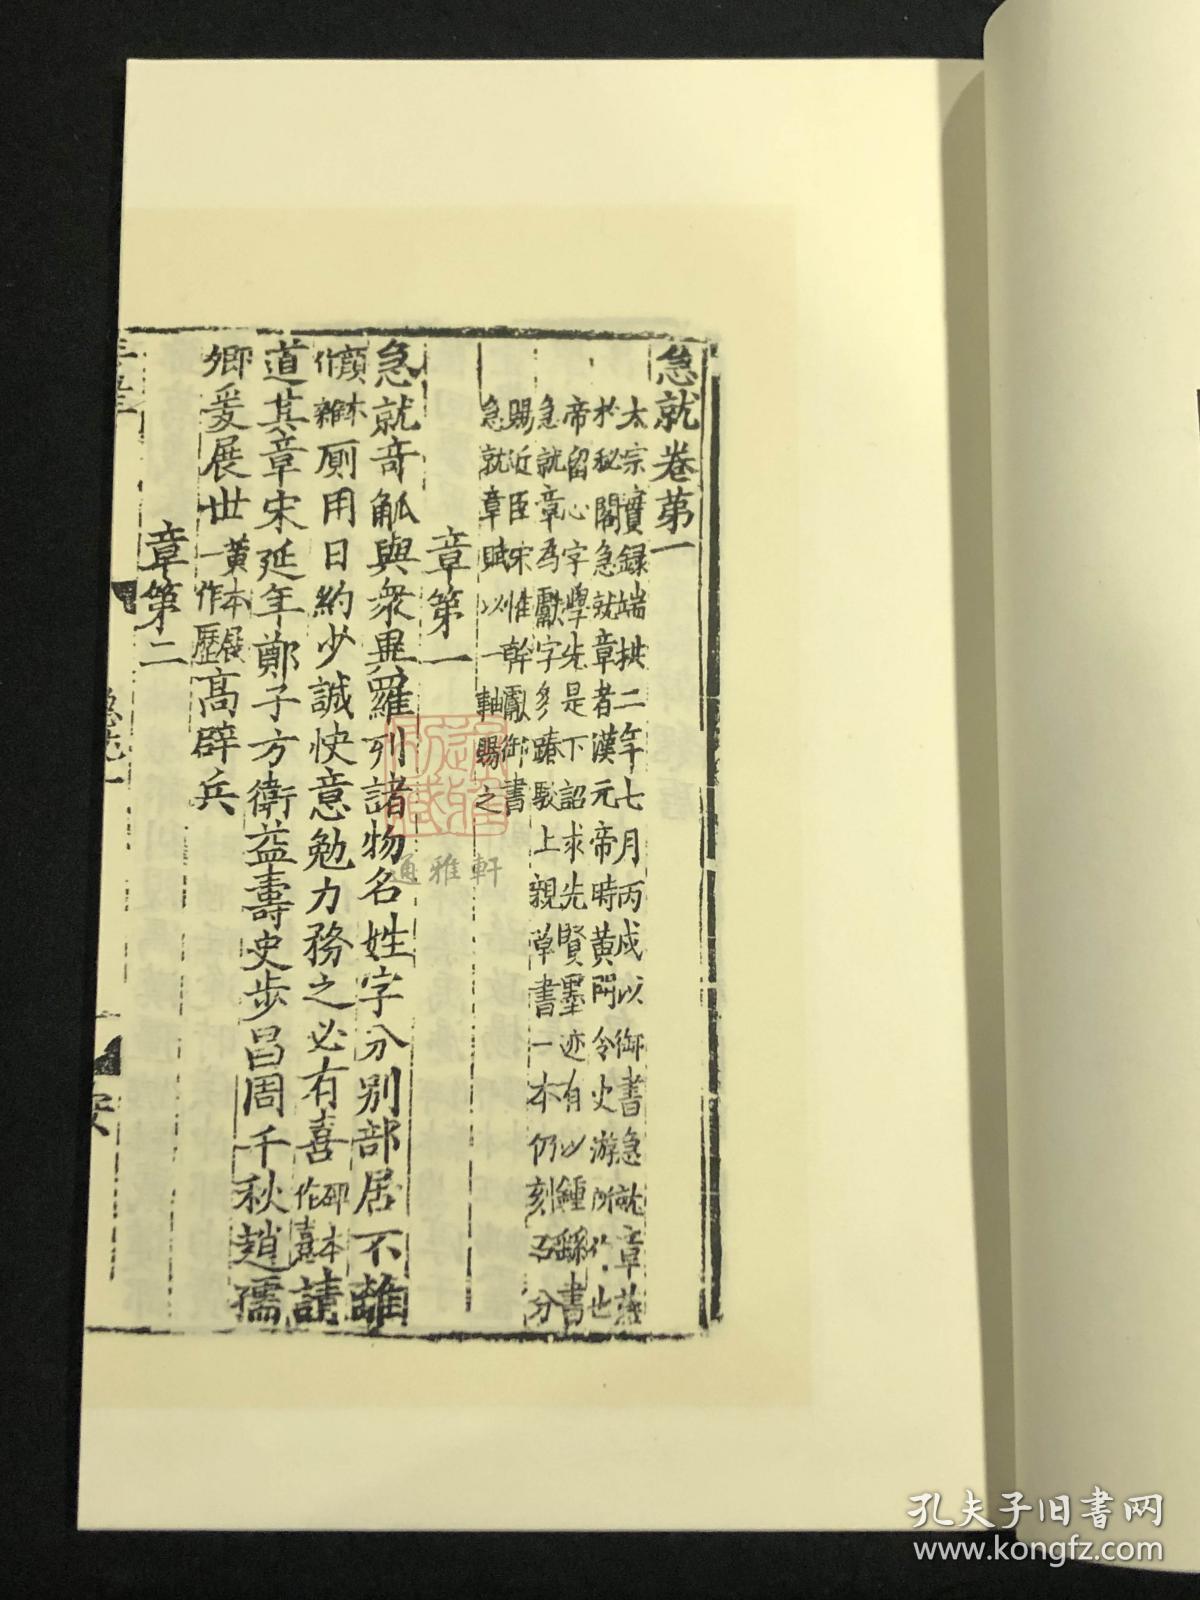 急就卷苐一
太宗實録端拱二年七月丙戌以御書急就章藏
於秘閣急就章者漢元帝時黄門令史游所作也
帝留心字學先是下詔求先賢墨迹有以鍾繇書
急就章為獻字多踳駁上親草書一本仍刻石分
賜近臣宋惟幹獻御書
急就章賦以一軸賜之
章第一
急就竒觚與衆異羅列諸物名姓字分别部居不雜
顔本作雜厠用日約少誠快意勉力務之必有喜碑本作憙請
道其章宋延年鄭子方衛益壽史步昌周千秋趙孺
卿爰展世一黄本展作歷高辟兵
章第二
急就一
一
安
通雅軒
孔夫子旧书网
www.kongfz.com